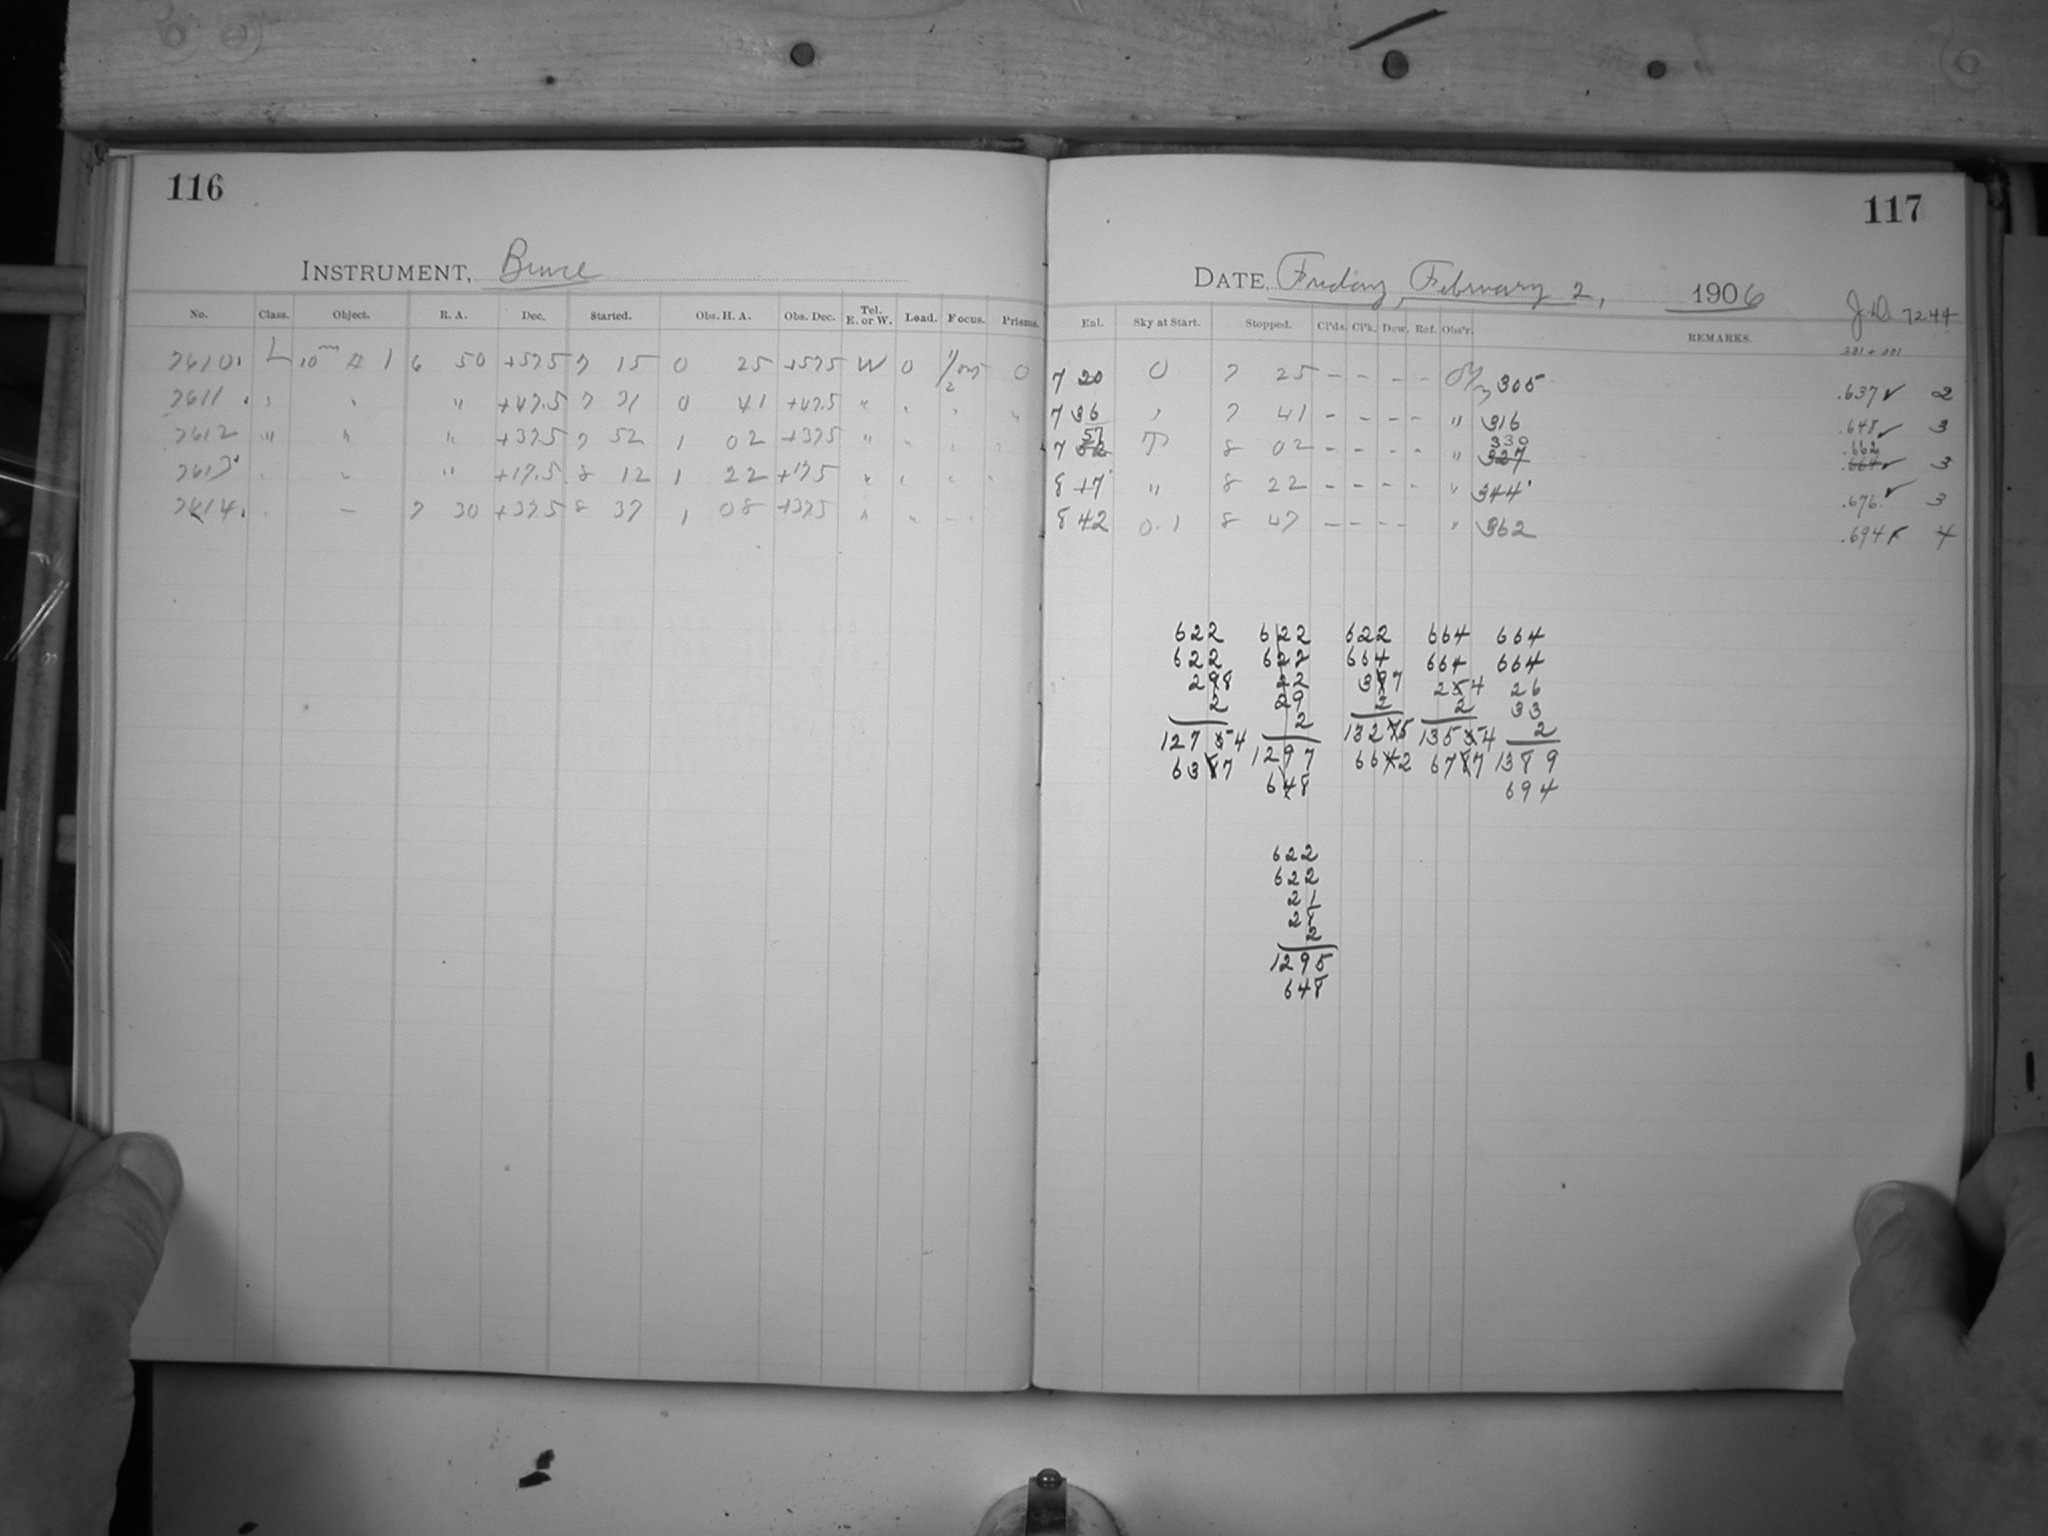 116
INSTRUMENT, Bruce
No. Class. Object. R. A. Dec. Started. Obs. H. A. Obs. Dec. Tel. E. or W. Load. Focus. Prisms.
7610. L 10m # 1 6 50 +57.5 7 15 0 25 +57.5 W 0 0
7611 . " " " +47.5 7 31 0 41 +47.5 " " " "
7612 " " " +37.5 7 52 1 02 +37.5 " " " "
7613 " " " +17.5 8 12 1 22 +17.5 " " " "
7614. 7 30 +37.5 8 37 1 08 +37.5 " "
117
DATE, Friday, February 2, 1906
J.D. 7244
Enl. Sky at Start. Stopped. Cl'ds. Cl'k. Dew. Ref. Obs'r. REMARKS.
7 20 0 7 25 - - - - 305 .637 ✓ 2
7 36 " 7 41 - - - - " 316 .648 ✓ 3
57 330 .662
7 52 8 02 - - - - " 327 .664 ✓ 3
8 17 " 8 22 - - - - " 344 .676 ✓ 3
8 42 0.1 8 47 - - - - " 362 .694 ✓ 4
622 622 622 664 664
622 622 664 664 664
298 22 397 254 26
2 29 2 2 33
12754 2 13275 13554 2
6387 1297 6642 6787 1389
648 694
622
622
21
28
2
1295
648